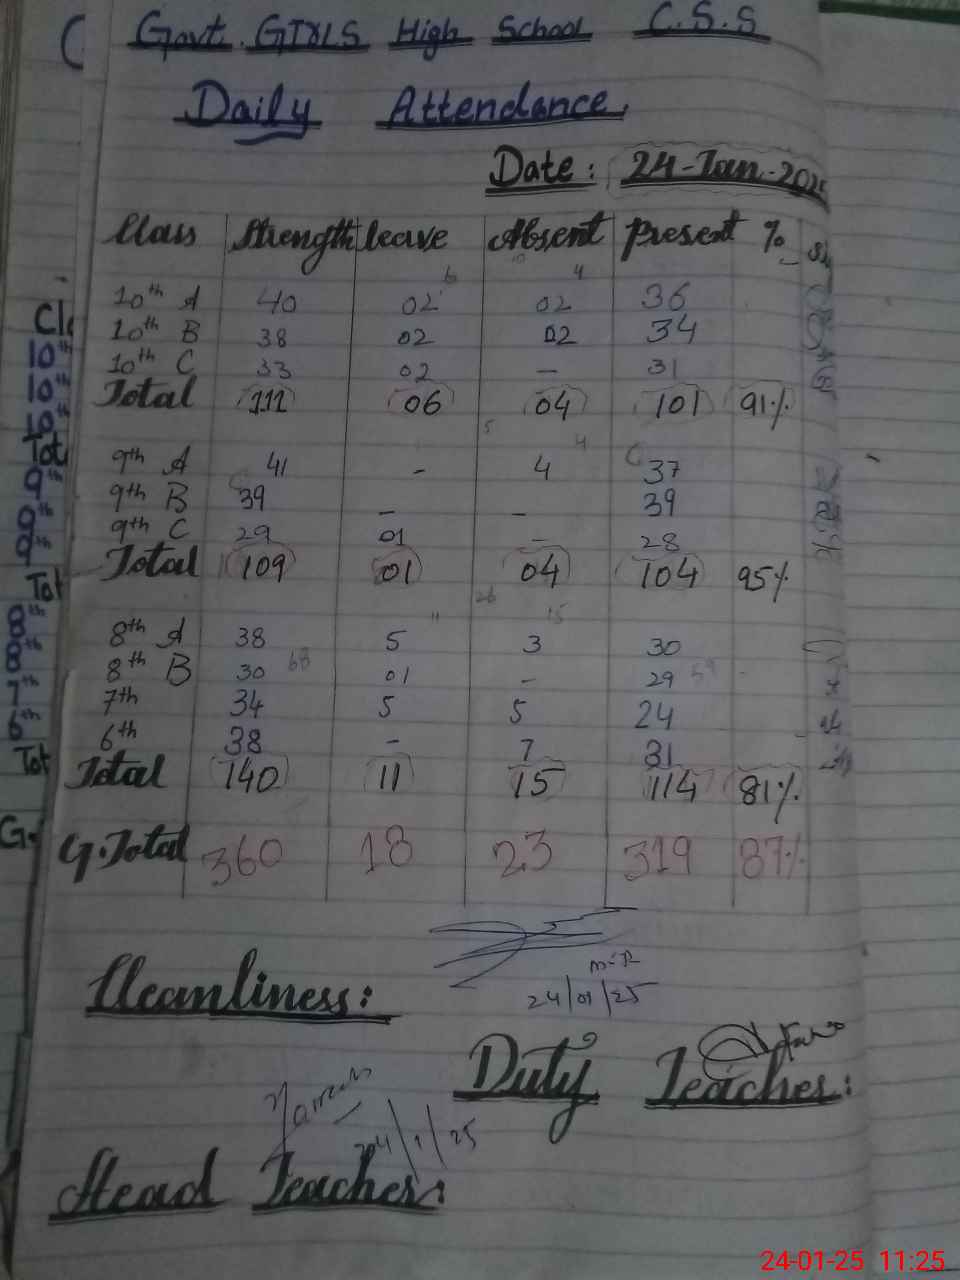 Govt. GIRLS High School C.S.S
Daily Attendance
Date: 24-Jan-2025
Class Strength leave Absent Present %
10th A 40 02 02 36
10th B 38 02 02 34
10th C 33 02 - 31
Total 111 06 04 101 91%
9th A 41 - 4 37
9th B 39 - - 39
9th C 29 01 - 28
Total 109 01 04 104 95%
8th A 38 5 3 30
8th B 30 68 01 - 29 59
7th 34 5 5 24
6th 38 - 7 31
Total 140 11 15 114 81%
G.Total 360 18 23 319 87%
Cleanliness:
24/01/25
Duty Teacher:
24/1/25
Head Teacher:
24-01-25 11:25